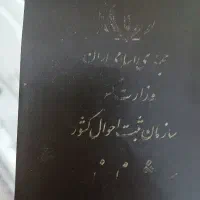 جمهوری اسلامی ایران
وزارت کشور
سازمان ثبت احوال کشور